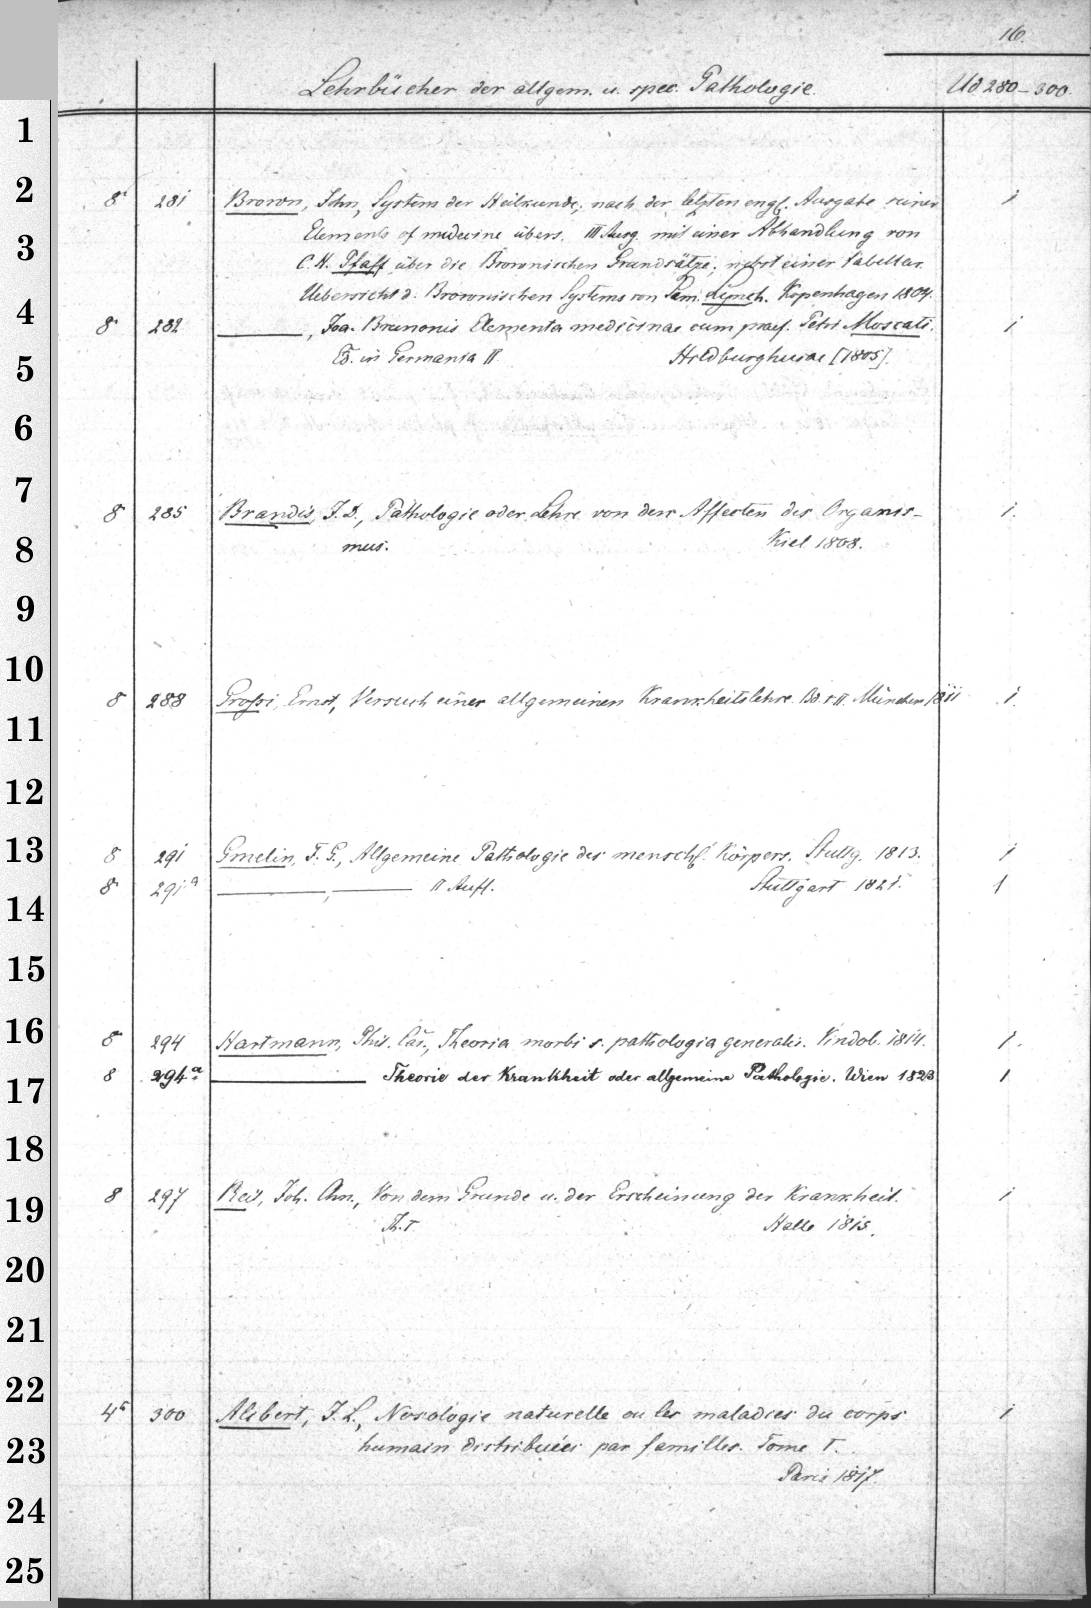 16.
Lehrbücher der allgem. u. spec. Pathologie. Ud 280-300.
1
2
8° 281 Brown, John, System der Heilkunde, nach der letzten engl. Ausgabe seiner 1
Elements of medicine übers. III Ausg. mit einer Abhandlung von
3
C. H. Pfaff über die Brownischen Grundsätze, nebst einer tabellar.
Uebersicht d. Brownischen Systems von Sam. Lynch. Kopenhagen 1804.
4
8° 282 ———, Joa. Brunonis Elementa medicinae cum praef. Petri Moscati. 1
Ed. in Germania II Hildburghusae [1805].
5
6
7
8 285 Brandis, J. D., Pathologie oder Lehre von den Affecten des Organis- 1.
mus. Kiel 1808.
8
9
10
8 288 Grossi, Ernst, Versuch einer allgemeinen Krankheitslehre. Bd. I II. München 1811 1.
11
12
13
8 291 Gmelin, F. G., Allgemeine Pathologie des menschl. Körpers. Stuttg. 1813. 1
8° 291a ———, ——— II Aufl. Stuttgart 1821. 1
14
15
16
8° 294 Hartmann, Phil. Car., Theoria morbi s. pathologia generalis. Vindob. 1814. 1.
8 294a ——— Theorie der Krankheit oder allgemeine Pathologie. Wien 1823 1
17
18
8 297 Reil, Joh. Chn., Von dem Grunde u. der Erscheinung der Krankheit. 1
19
Th. I Halle 1815.
20
21
22
4° 300 Alibert, J. L., Nosologie naturelle ou les maladies du corps 1
23
humain distribuées par familles. Tome I.
Paris 1817.
24
25